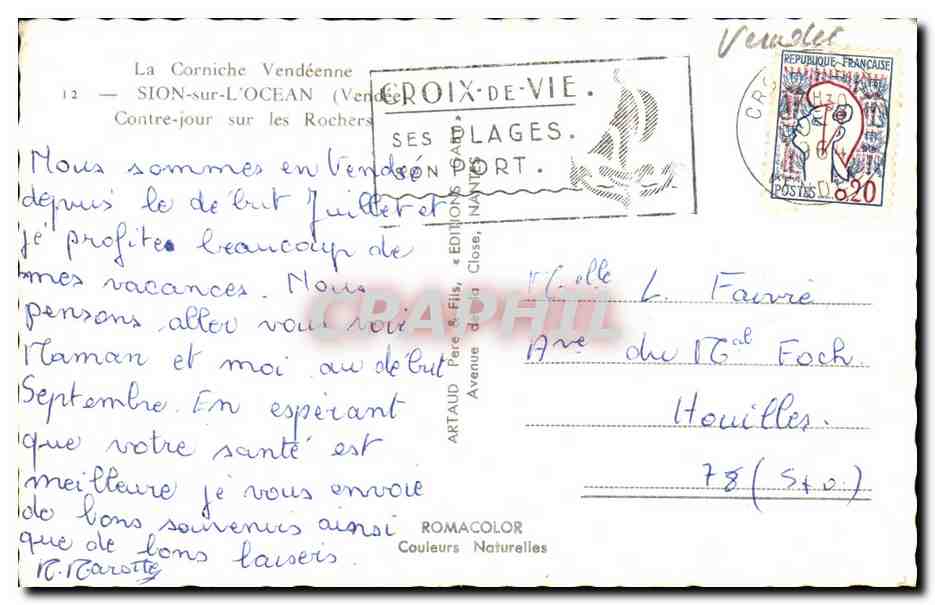 Vendée
La Corniche Vendéenne
12 — SION-sur-L'OCEAN (Vendée)
Contre-jour sur les Rochers
CROIX-DE-VIE.
SES PLAGES.
SON PORT.
REPUBLIQUE FRANÇAISE
POSTES 0,20
Nous sommes en Vendée
depuis le début Juillet et
je profite beaucoup de
mes vacances. Nous
pensons aller vous voir
Maman et moi au début
Septembre. En espérant
que votre santé est
meilleure je vous envoie
de bons souvenirs ainsi
que de bons baisers.
M. Marotte
ARTAUD Père & Fils, « EDITIONS GABY »
Avenue de la Close, NANTES
Melle L. Faivre
Ave du Mal Foch.
Houilles.
78 (S+O.)
ROMACOLOR
Couleurs Naturelles
CRAPHIL